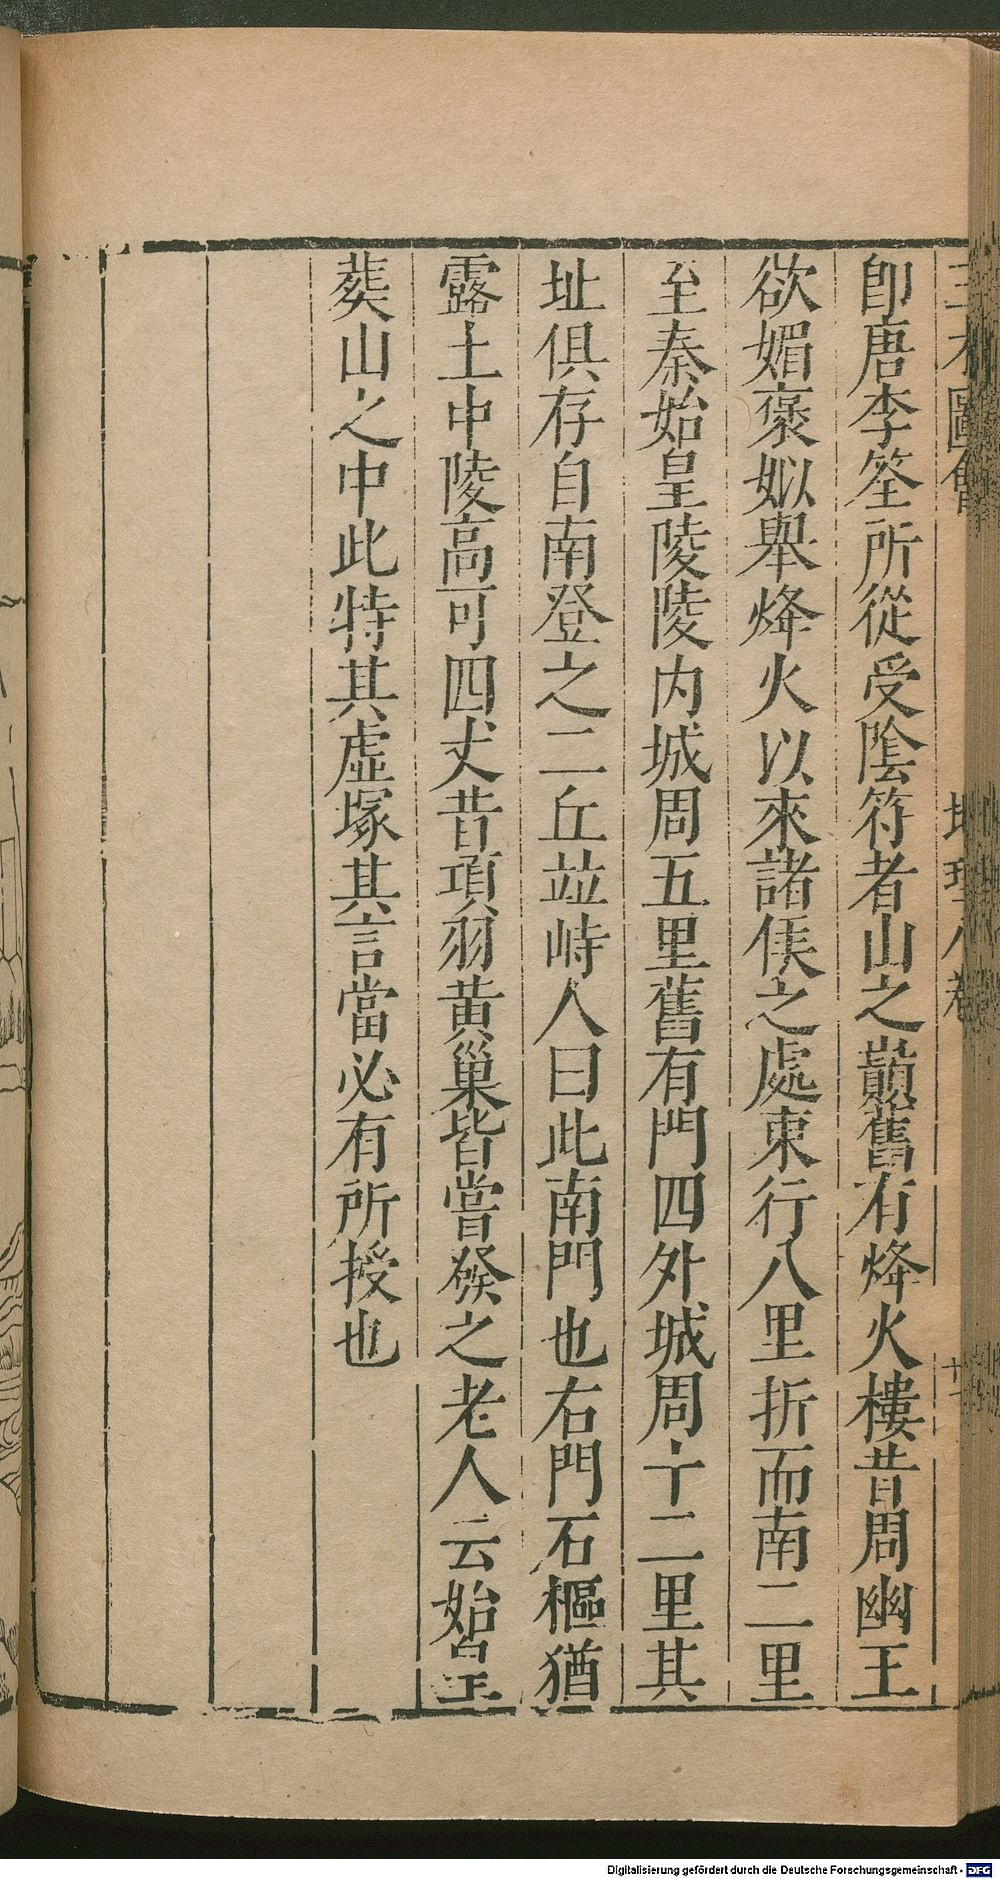 卽唐李筌所從受陰符者山之巔舊有烽火樓昔周幽王
欲媚褒姒舉烽火以來諸侯之處東行八里折而南二里
至秦始皇陵陵内城周五里舊有門四外城周十二里其
址俱存自南登之二丘並峙人曰此南門也右門石樞猶
露土中陵高可四丈昔項羽黄巢皆嘗發之老人云始皇
葬山之中此特其虛塚其言當必有所授也
Digitalisierung gefördert durch die Deutsche Forschungsgemeinschaft - DFG